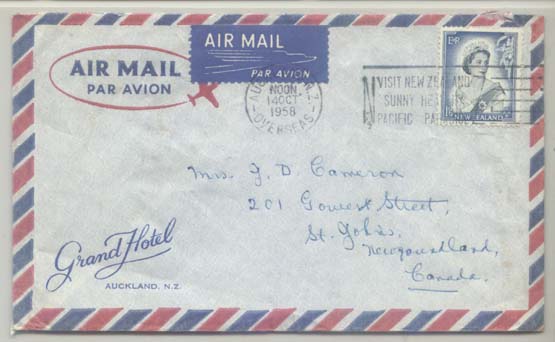 AIR MAIL
PAR AVION
AIR MAIL
PAR AVION
NOON
14 OCT
1958
OVERSEAS
VISIT NEW ZEALAND
SUNNY
PACIFIC
NEW ZEALAND
Mrs. J. D. Cameron
201 Gower Street,
St. John's,
Newfoundland,
Canada.
Grand Hotel
AUCKLAND, N.Z.